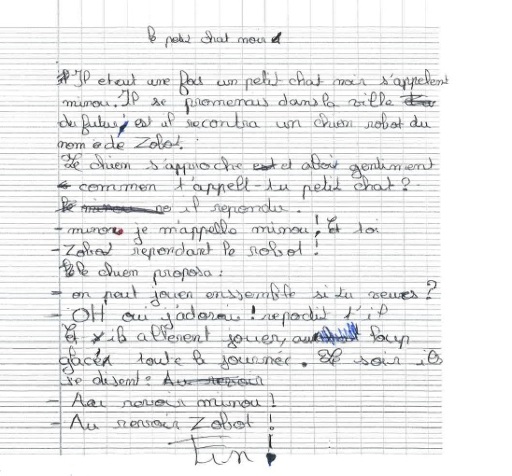 le petit chat noir
Il etait une fois un petit chat noir s'appelent
minou. Il se promenais dans la ville
du futur, est il recontra un chien robot du
nom de Zobot.
Le chien s'approche et aboi gentiment
- commen t'appell-tu petit chat ?
il repondu.
- minou je m'appelle minou ! Et toi
- Zobot repondant le robot !
le chien proposa :
- on peut jouer enssemble si tu veues ?
- OH oui j'adorais ! repondit t'il
Et ils allerent jouer, au loup
glacé toute la journée. Le soir ils
se disent :
- Au revoir minou !
- Au revoir Zobot !
Fin